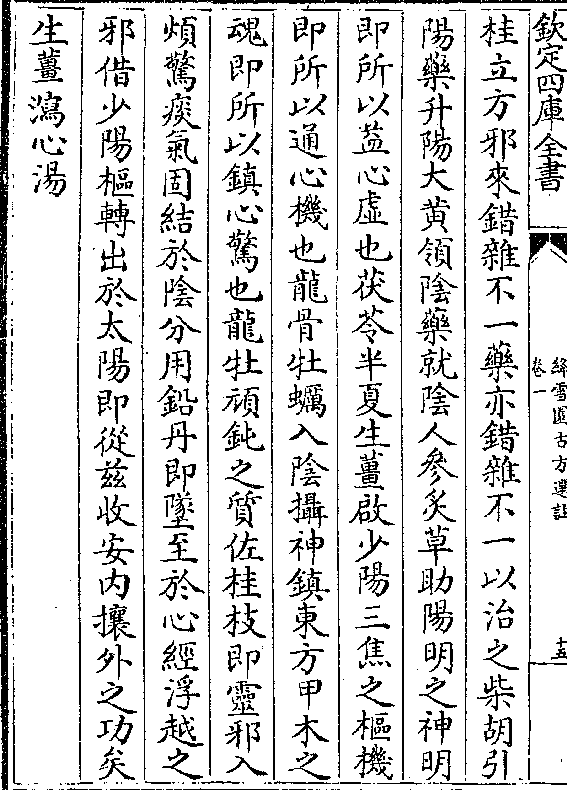 欽定四庫全書
絳雪園古方選註
卷一
十五
桂立方邪來錯雜不一藥亦錯雜不一以治之柴胡引
陽藥升陽大黄領陰藥就陰人參炙草助陽明之神明
即所以益心虛也茯苓半夏生薑啟少陽三焦之樞機
即所以通心機也龍骨牡蠣入陰攝神鎮東方甲木之
魂即所以鎮心驚也龍牡頑鈍之質佐桂枝即靈邪入
煩驚痰氣固結於陰分用鉛丹即墜至於心經浮越之
邪借少陽樞轉出於太陽即從茲收安内攘外之功矣
生薑瀉心湯